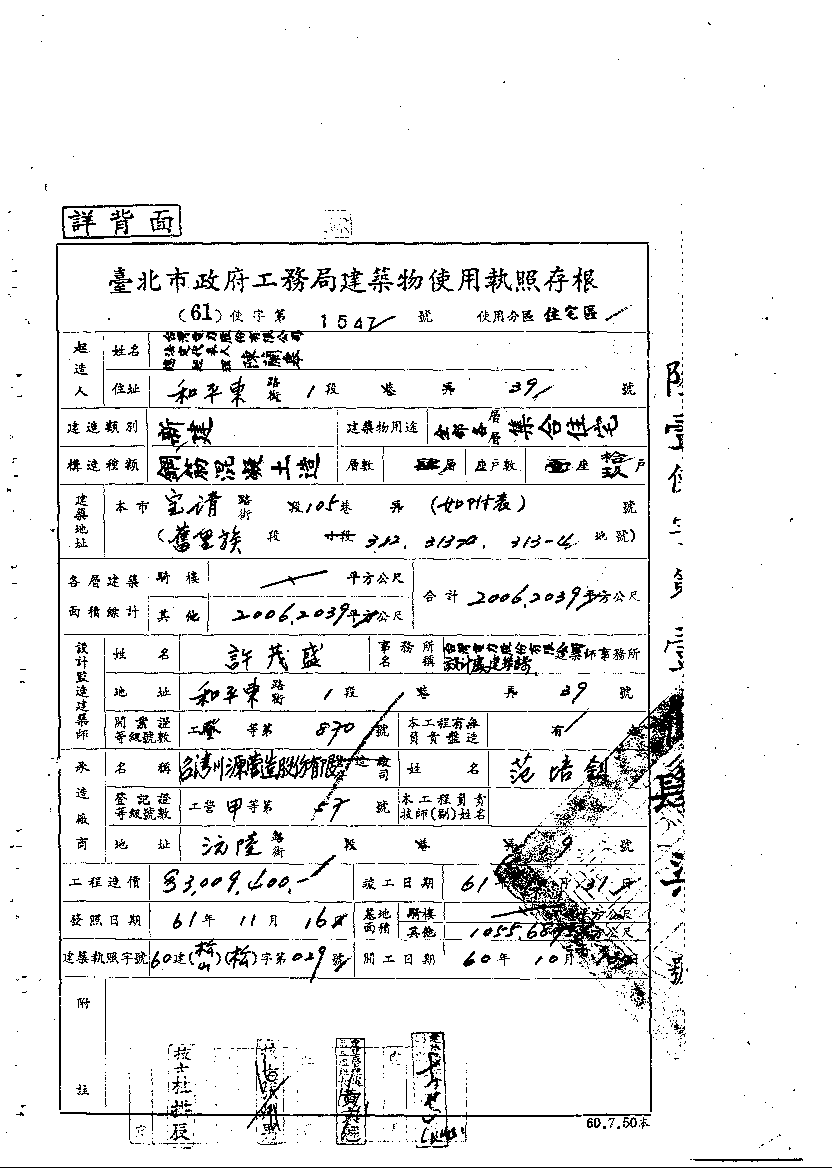 詳背面
臺北市政府工務局建築物使用執照存根
(61)使字第 1547 號 使用分區 住宅區
起造人 姓名 台灣電力股份有限公司
住址 和平東 路街 1 段 巷 弄 39 號
建造類別 新建 建築物用途 全部各層 集合住宅
構造種類 鋼筋混凝土造 層數 肆層 座戶數 壹座 拾玖戶
建築地址 本市 寶清 路街 段 105 巷 弄 (如附表) 號
(舊里族 段 小段 312. 313-4 地號)
各層建築面積總計 騎樓 平方公尺 合計 2006.2039 平方公尺
其他 2006.2039 平方公尺
設計監造建築師 姓名 許茂盛 事務所名稱 台灣電力股份有限公司 建築師事務所
地址 和平東 路街 1 段 巷 弄 39 號
開業證等級號數 工 等第 870 號 本工程有無負責監造 有
承造廠商 名稱 台灣川源營造股份有限公司 姓名 范培
登記證等級號數 工營 甲 等第 57 號 本工程負責技師(副)姓名
地址 沅陵 路街 段 巷 弄 9 號
工程造價 3,009,400.- 竣工日期 61 年 月 31 日
發照日期 61 年 11 月 16 日 基地面積 騎樓 平方公尺
其他 1055.68 平方公尺
建築執照字號 60 建(松山)(松)字第 029 號 開工日期 60 年 10 月 日
附註
技士杜 辰
60.7.50本